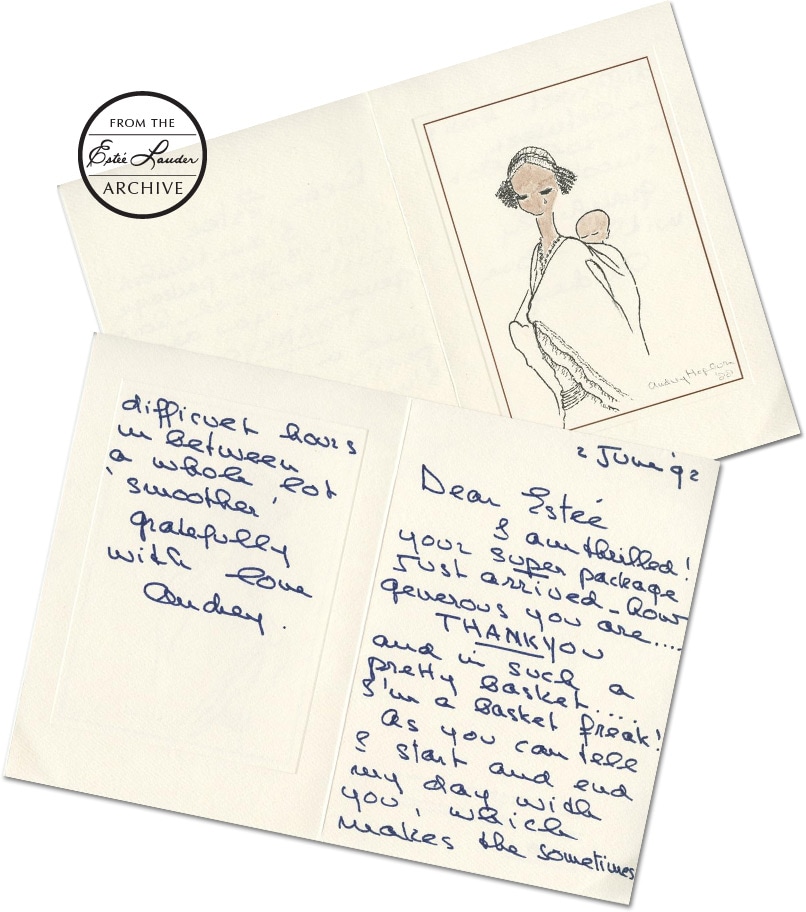 FROM THE
Estée Lauder
ARCHIVE
Audrey Hepburn
2 June '92
Dear Estée
I am thrilled!
your super package
Just arrived - how
generous you are....
THANK YOU
and in such a
pretty basket....
I'm a basket freak!
As you can tell
I start and end
my day with
you, which
makes the sometimes
difficult hours
in between
a whole lot
'smoother'
gratefully
with love
Audrey.